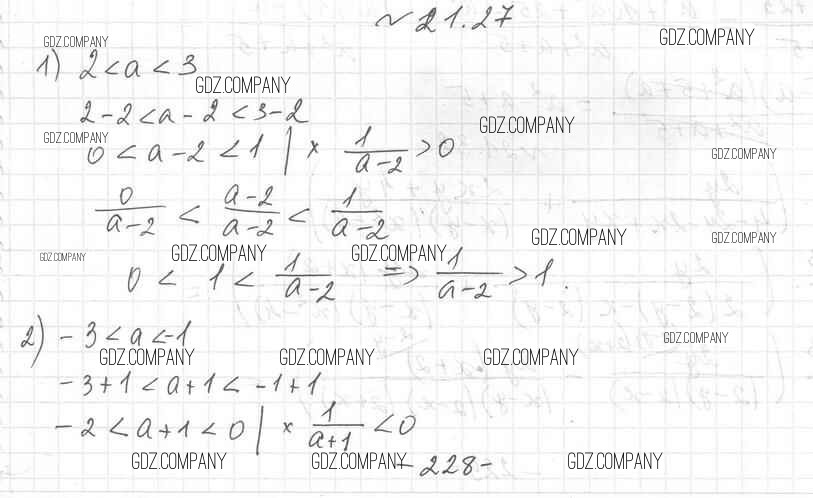 № 21.27
GDZ.COMPANY GDZ.COMPANY
1) 2 < a < 3
GDZ.COMPANY
2 - 2 < a - 2 < 3 - 2
GDZ.COMPANY GDZ.COMPANY
0 < a - 2 < 1 | × 1/(a-2) > 0
GDZ.COMPANY
0/(a-2) < (a-2)/(a-2) < 1/(a-2)
GDZ.COMPANY GDZ.COMPANY
GDZ.COMPANY GDZ.COMPANY GDZ.COMPANY
0 < 1 < 1/(a-2) => 1/(a-2) > 1.
2) - 3 < a < -1
GDZ.COMPANY
GDZ.COMPANY GDZ.COMPANY GDZ.COMPANY
- 3 + 1 < a + 1 < - 1 + 1
- 2 < a + 1 < 0 | × 1/(a+1) < 0
GDZ.COMPANY GDZ.COMPANY - 228 - GDZ.COMPANY